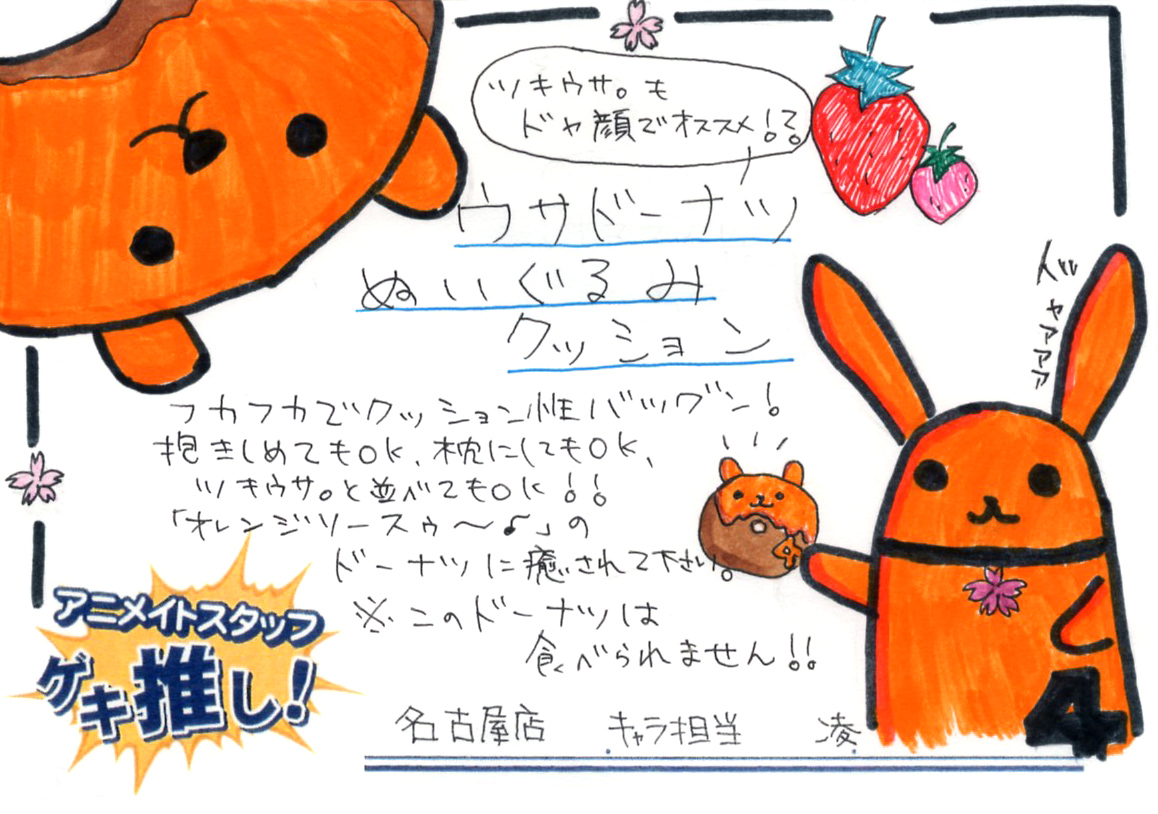 ツキウサ。も
ドヤ顔でオススメ!?
ウサドーナツ
ぬいぐるみ
クッション
ドヤァァァ
フカフカでクッション性バツグン!
抱きしめてもOK、枕にしてもOK、
ツキウサ。と並べてもOK!!
「オレンジソースゥ～♪」の
ドーナツに癒されて下さい。
※このドーナツは
食べられません!!
アニメイトスタッフ
ゲキ推し!
名古屋店 キャラ担当 凌
4